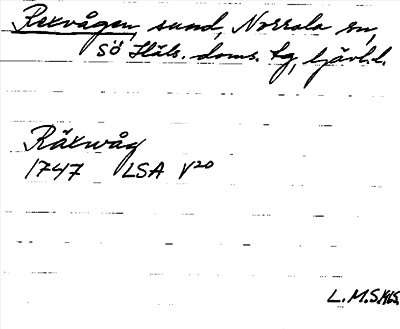 Rexvågen, sund, Norrala sn,
Sö Häls. doms. tg, Gävl.l.
Räxwåg
1747 LSA V20
L.M.S. 1965.